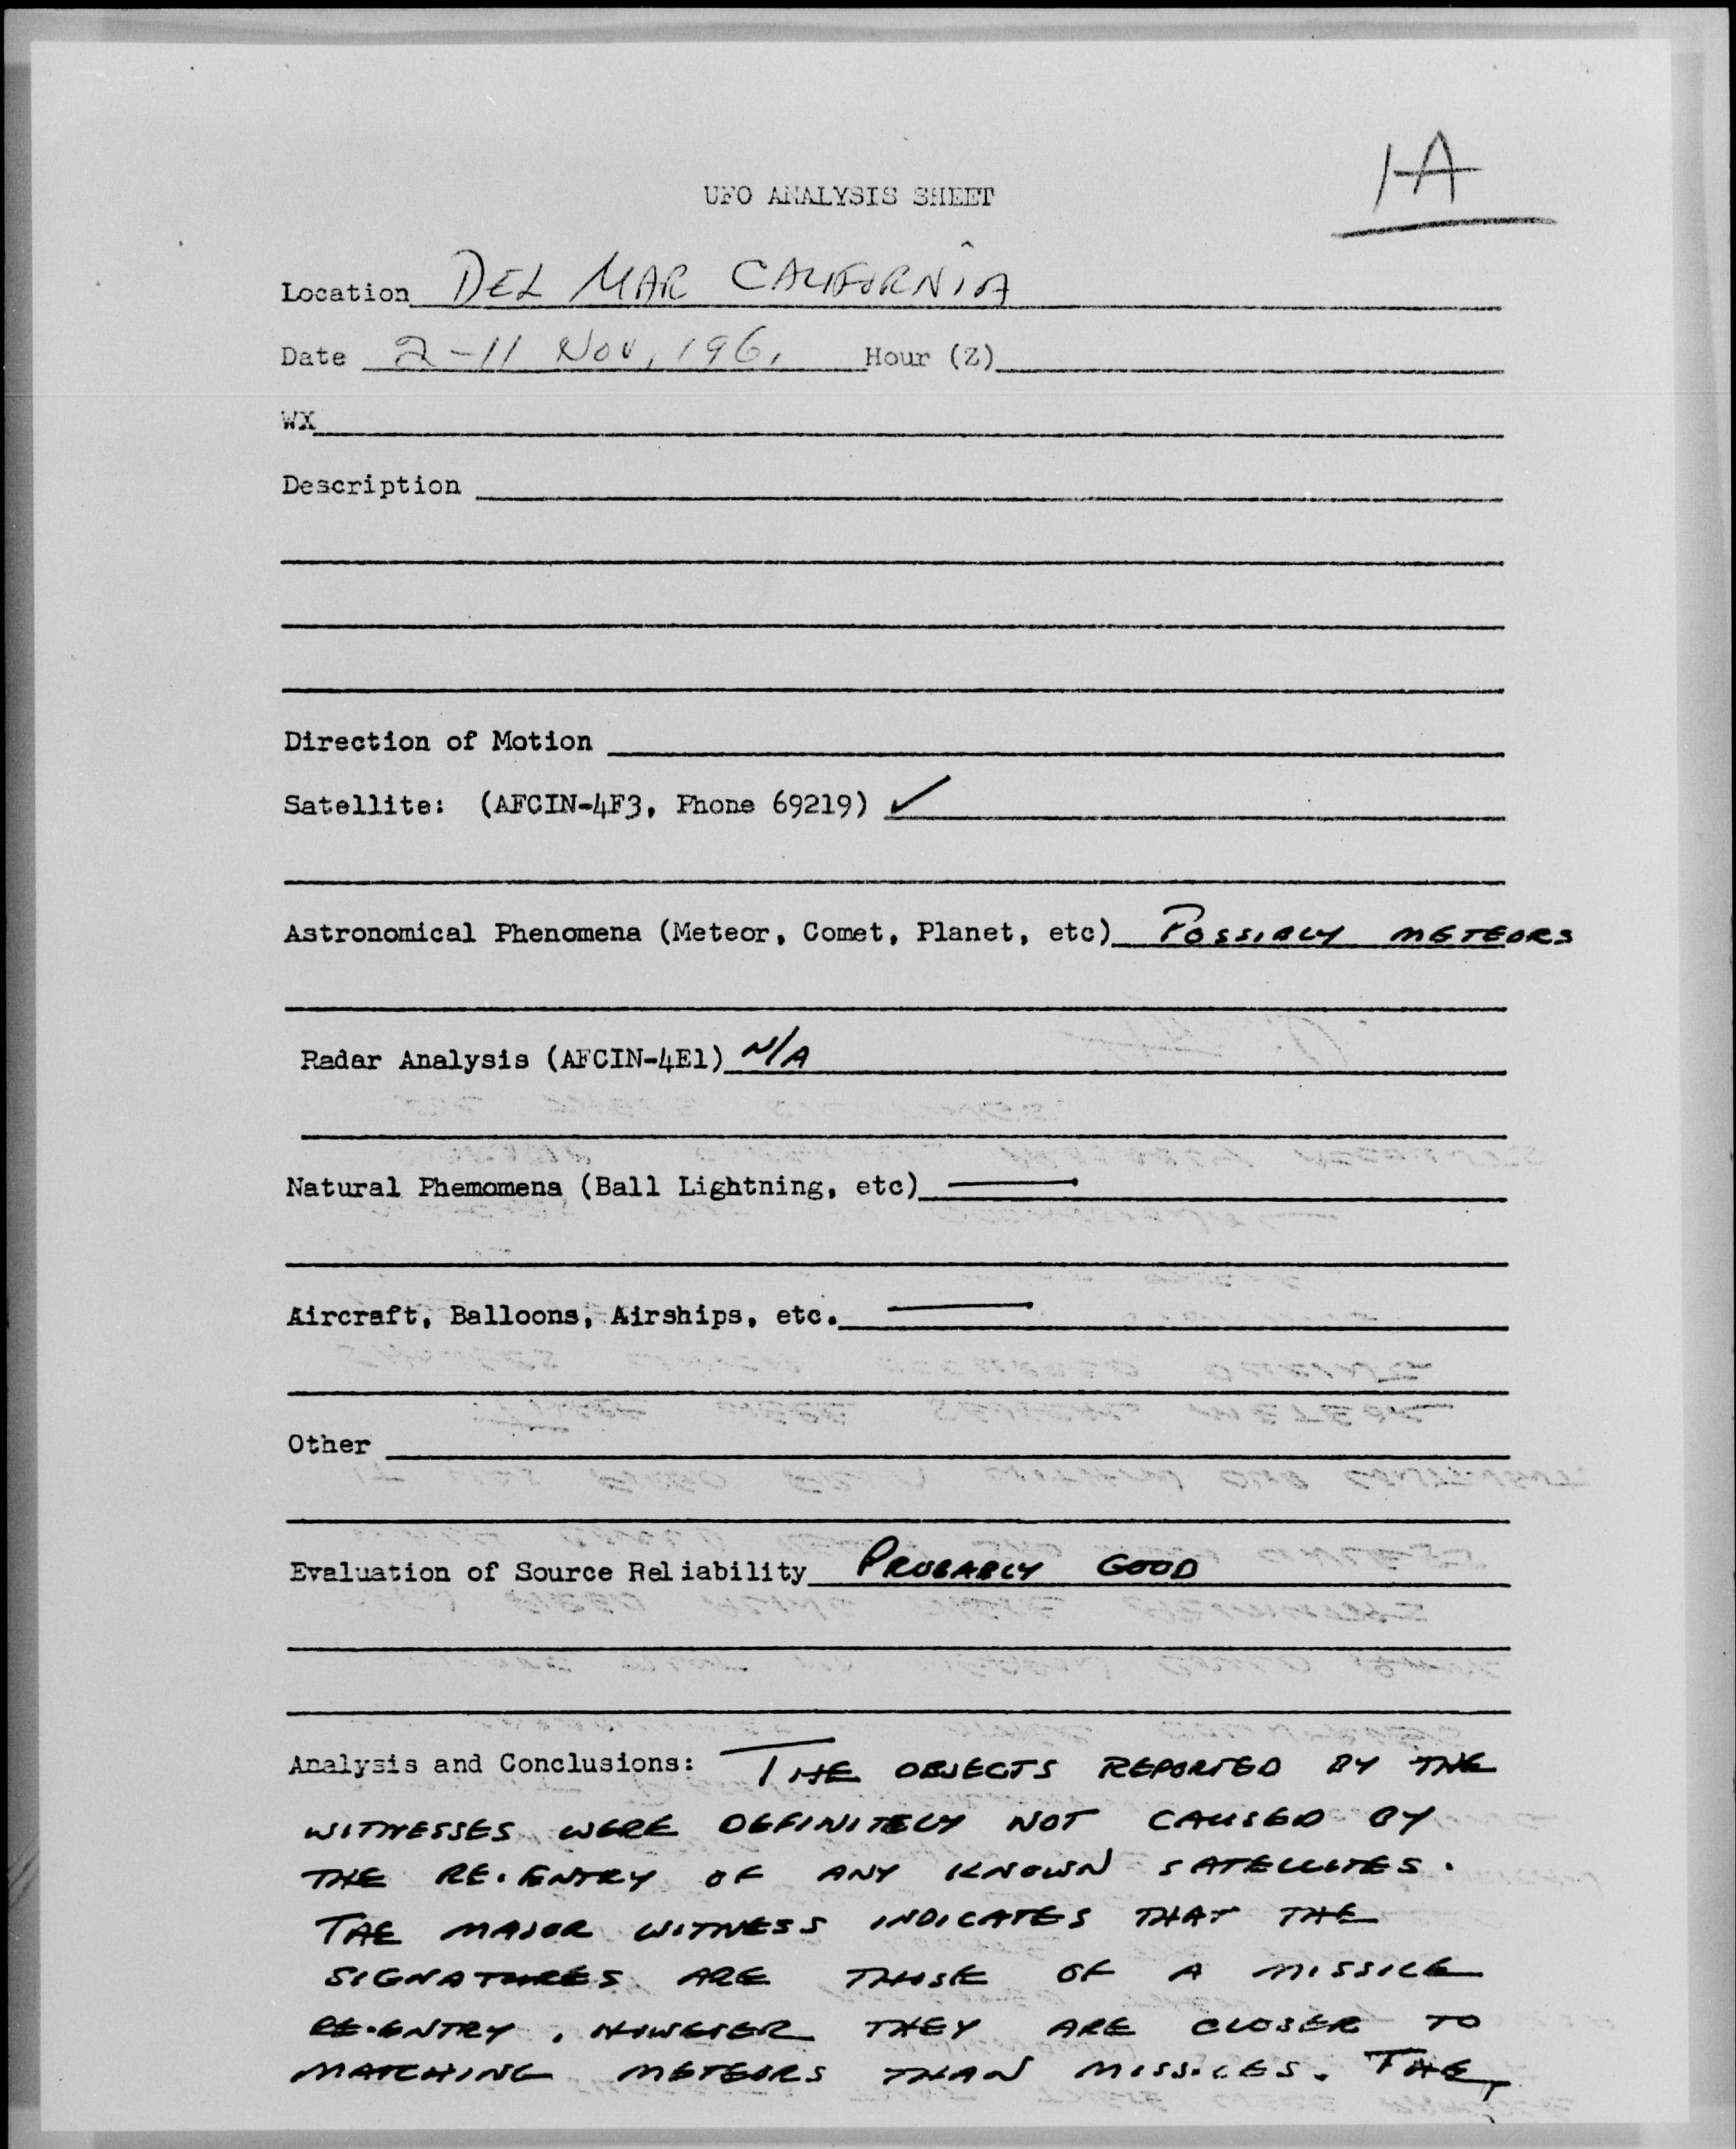 1-A
UFO ANALYSIS SHEET
Location DEL MAR CALIFORNIA
Date 2-11 Nov, 1961 Hour (Z)
WX
Description
Direction of Motion
Satellite: (AFCIN-4F3, Phone 69219) ✓
Astronomical Phenomena (Meteor, Comet, Planet, etc) POSSIBLY METEORS
Radar Analysis (AFCIN-4E1) N/A
Natural Phemomena (Ball Lightning, etc) —
Aircraft, Balloons, Airships, etc. —
Other
Evaluation of Source Reliability PROBABLY GOOD
Analysis and Conclusions: THE OBJECTS REPORTED BY THE
WITNESSES WERE DEFINITELY NOT CAUSED BY
THE RE-ENTRY OF ANY KNOWN SATELLITES.
THE MAJOR WITNESS INDICATES THAT THE
SIGNATURES ARE THOSE OF A MISSILE
RE-ENTRY, HOWEVER THEY ARE CLOSER TO
MATCHING METEORS THAN MISSILES. THE